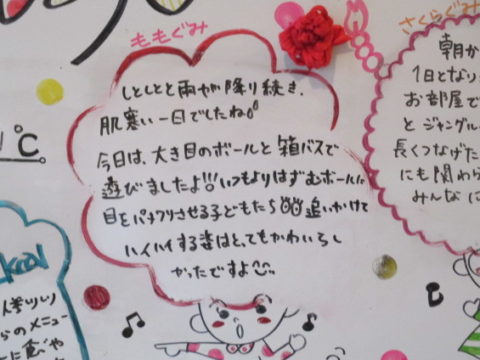 ももぐみ
しとしとと雨が降り続き、
肌寒い一日でしたね
今日は、大き目のボールと箱バスで
遊びましたよ!!いつもよりはずむボールに
目をパチクリさせる子どもたち 追いかけて
ハイハイする姿はとってもかわいらし
かったですよ
さくらぐみ
朝か
1日となり
お部屋で
とジャングル
長くつなげた
にも関わら
みんなに
℃
らのメニュー